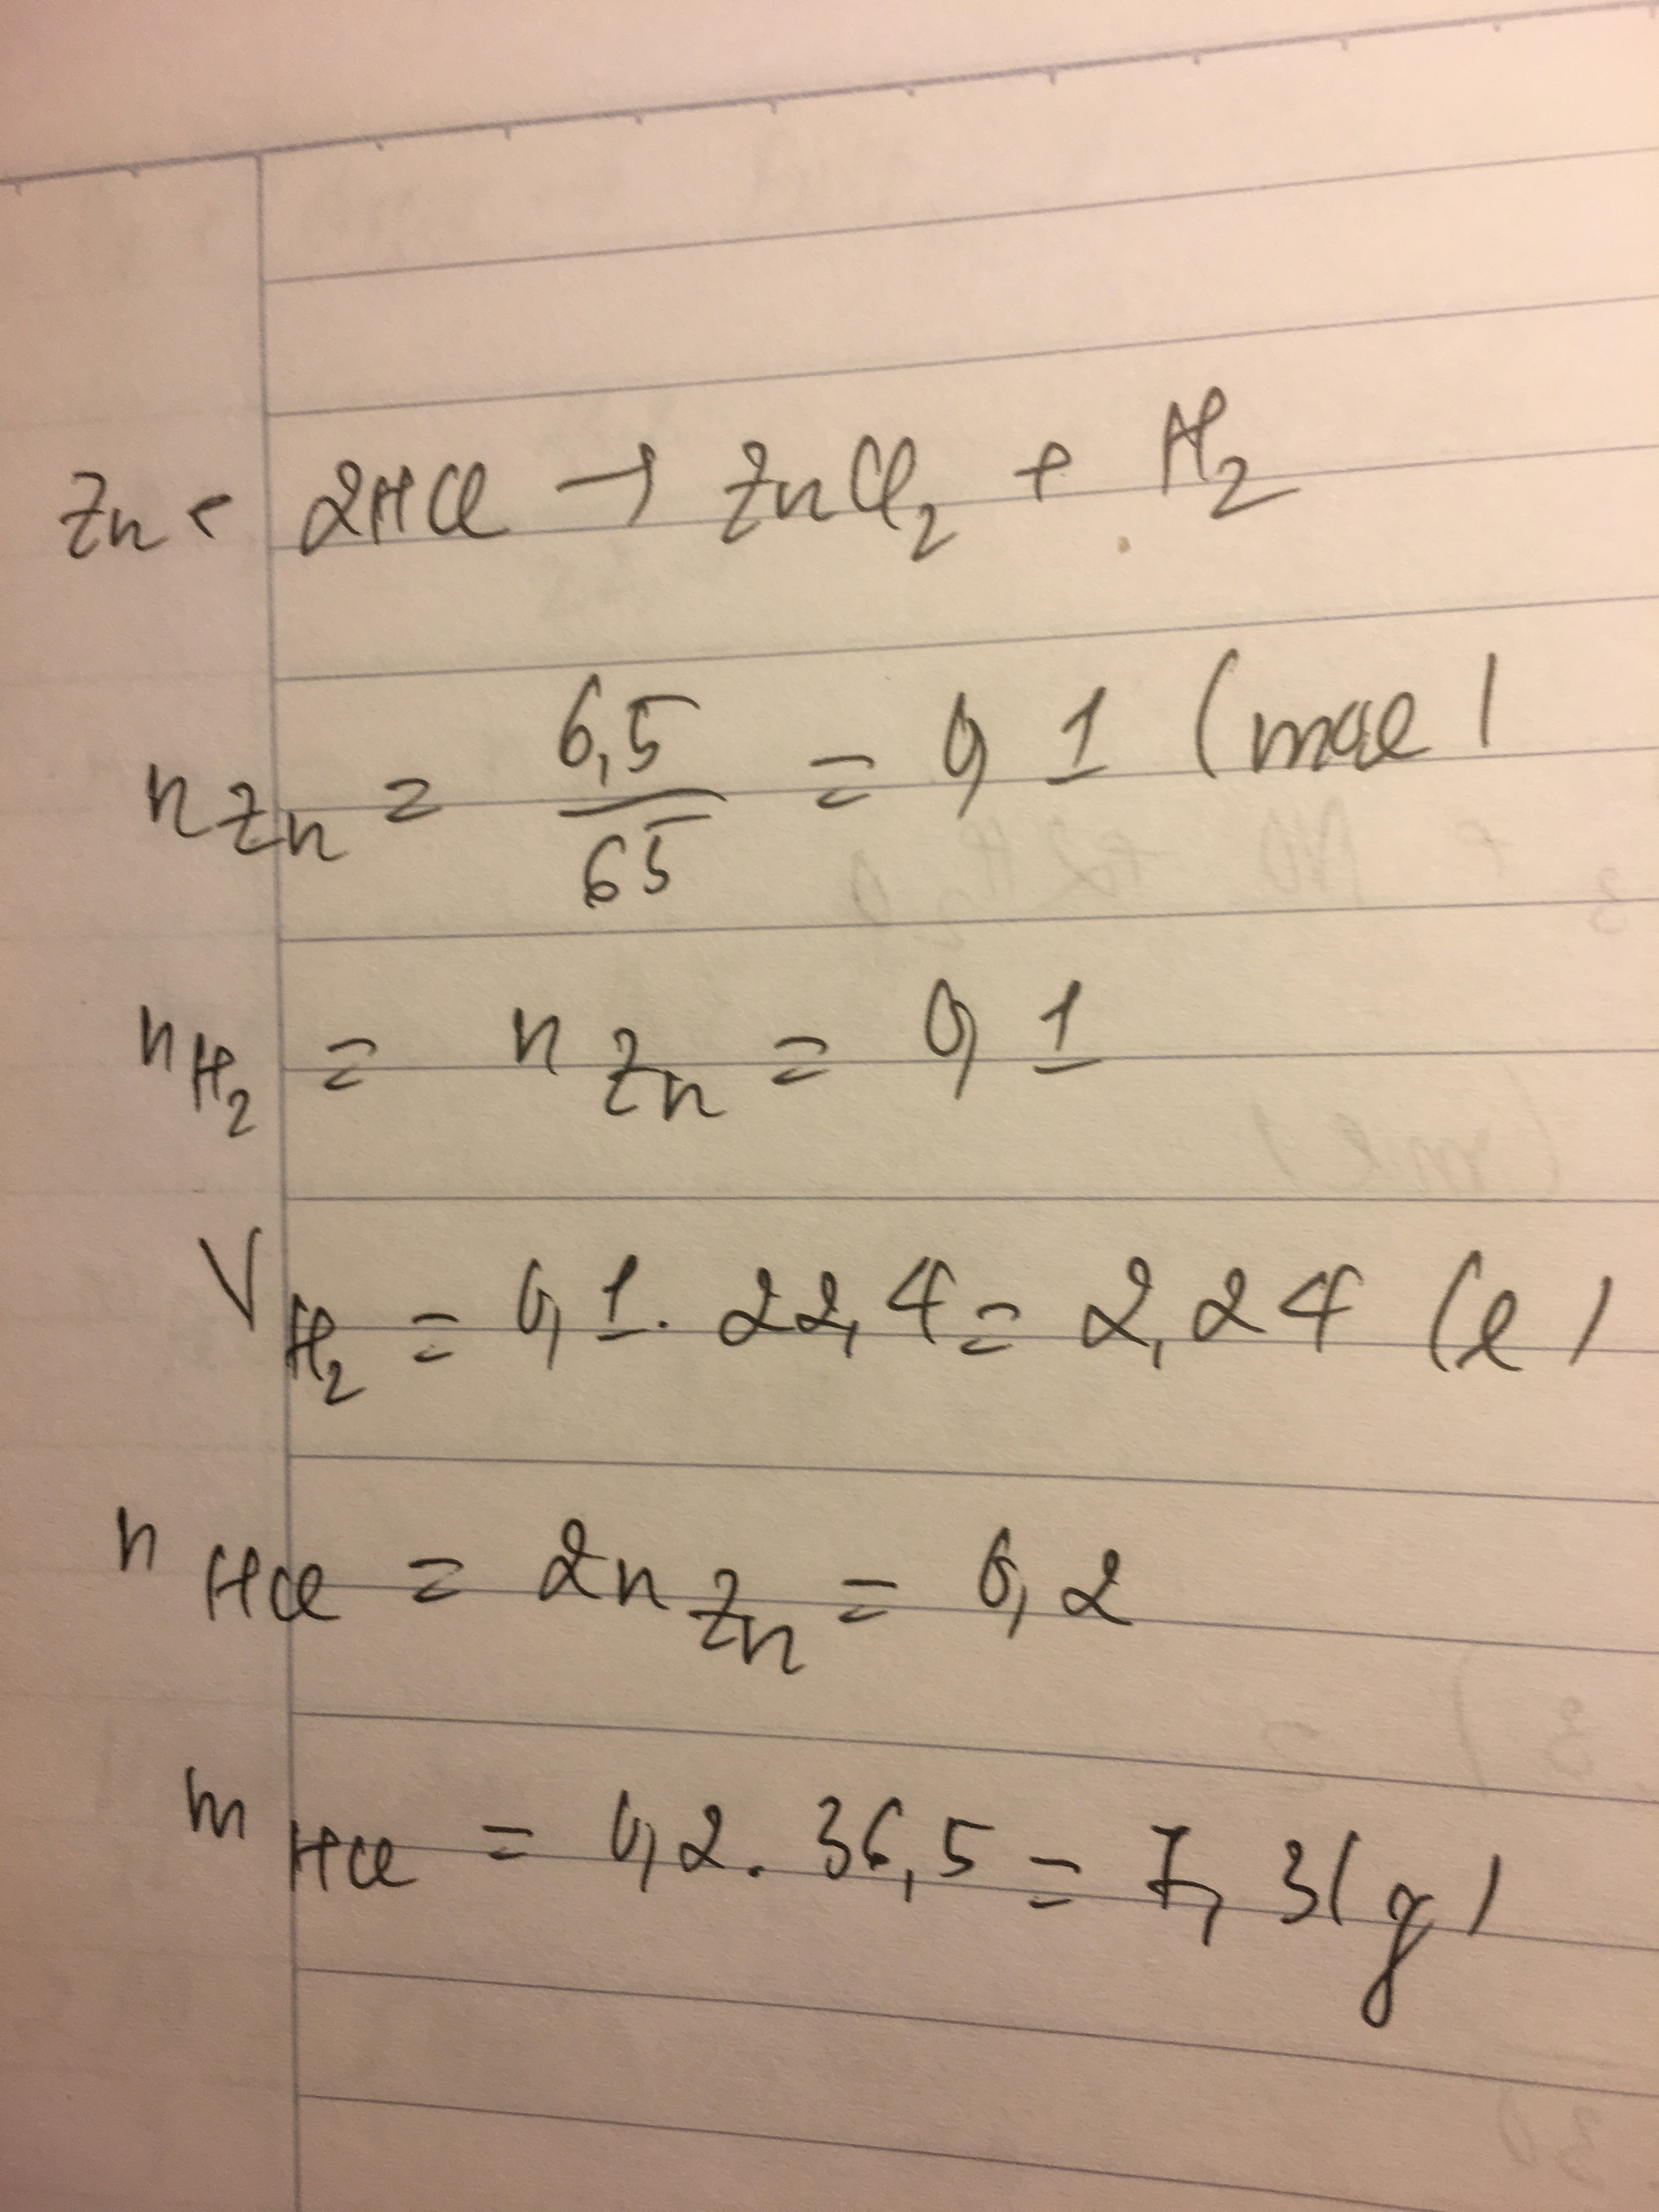 Zn + 2HCl → ZnCl₂ + H₂
nZn = 6,5/65 = 0,1 (mol)
nH₂ = nZn = 0,1
VH₂ = 0,1 . 22,4 = 2,24 (l)
nHCl = 2nZn = 0,2
mHCl = 0,2 . 36,5 = 7,3 (g)